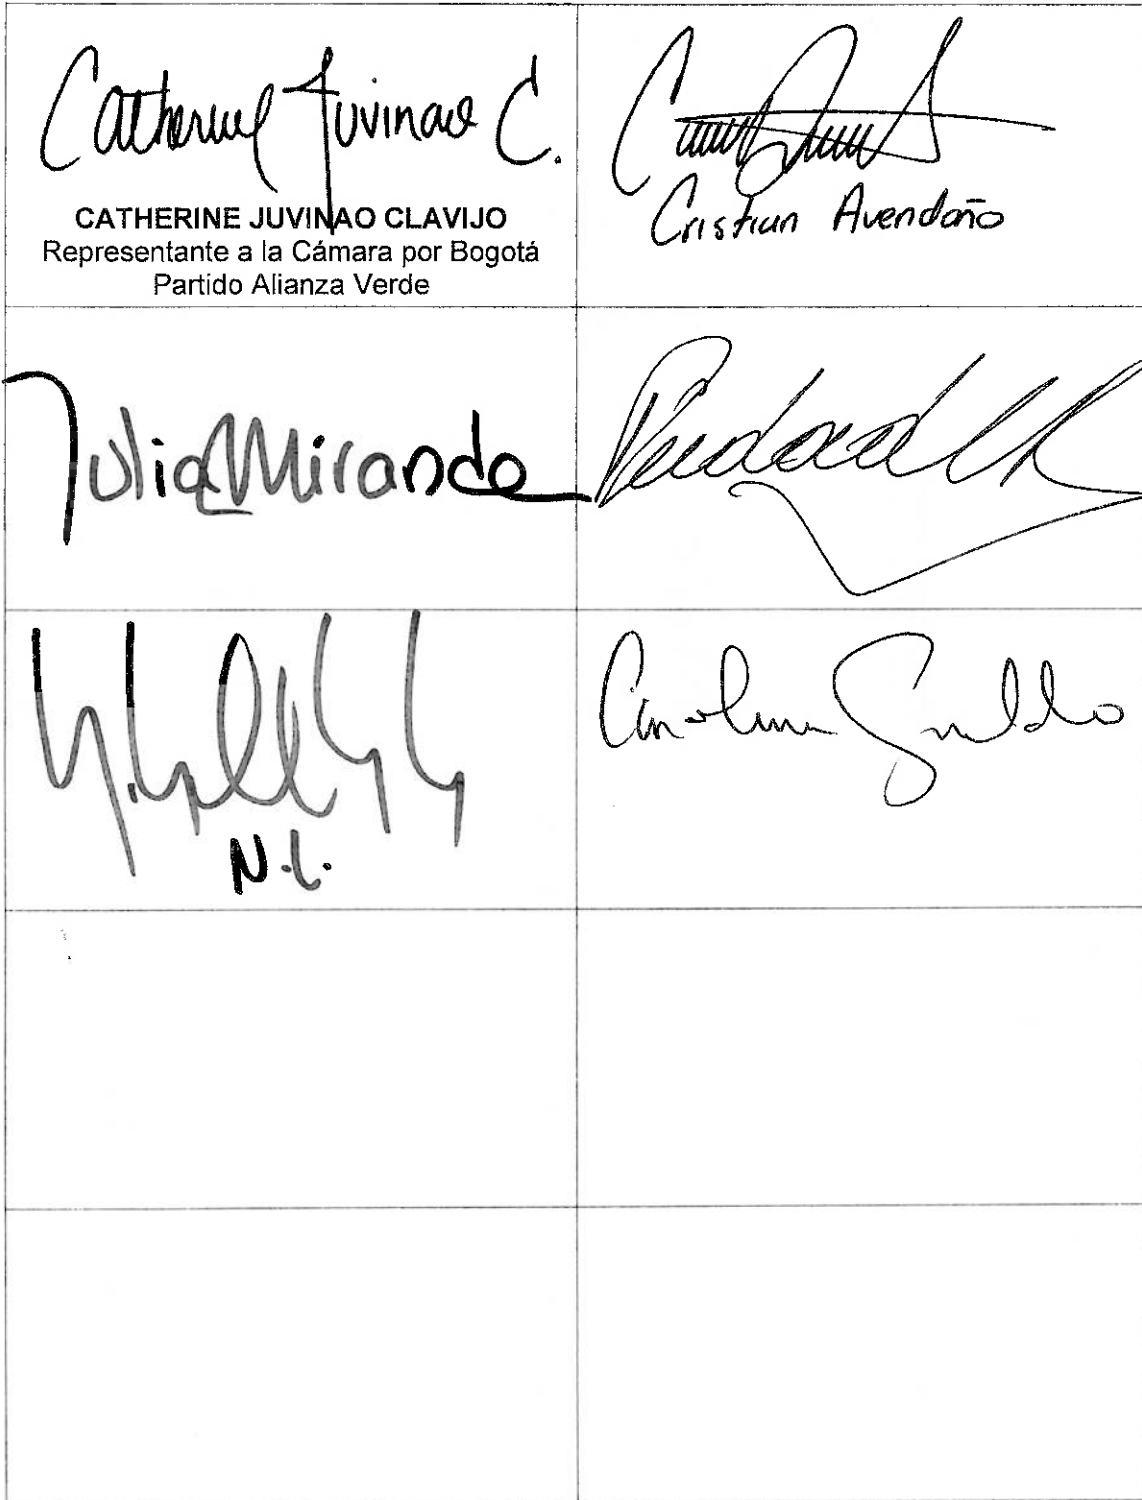 Catherine Juvinao C.
CATHERINE JUVINAO CLAVIJO
Representante a la Cámara por Bogotá
Partido Alianza Verde
Cristian Avendaño
Julia Miranda
N.L.
Carolina Giraldo